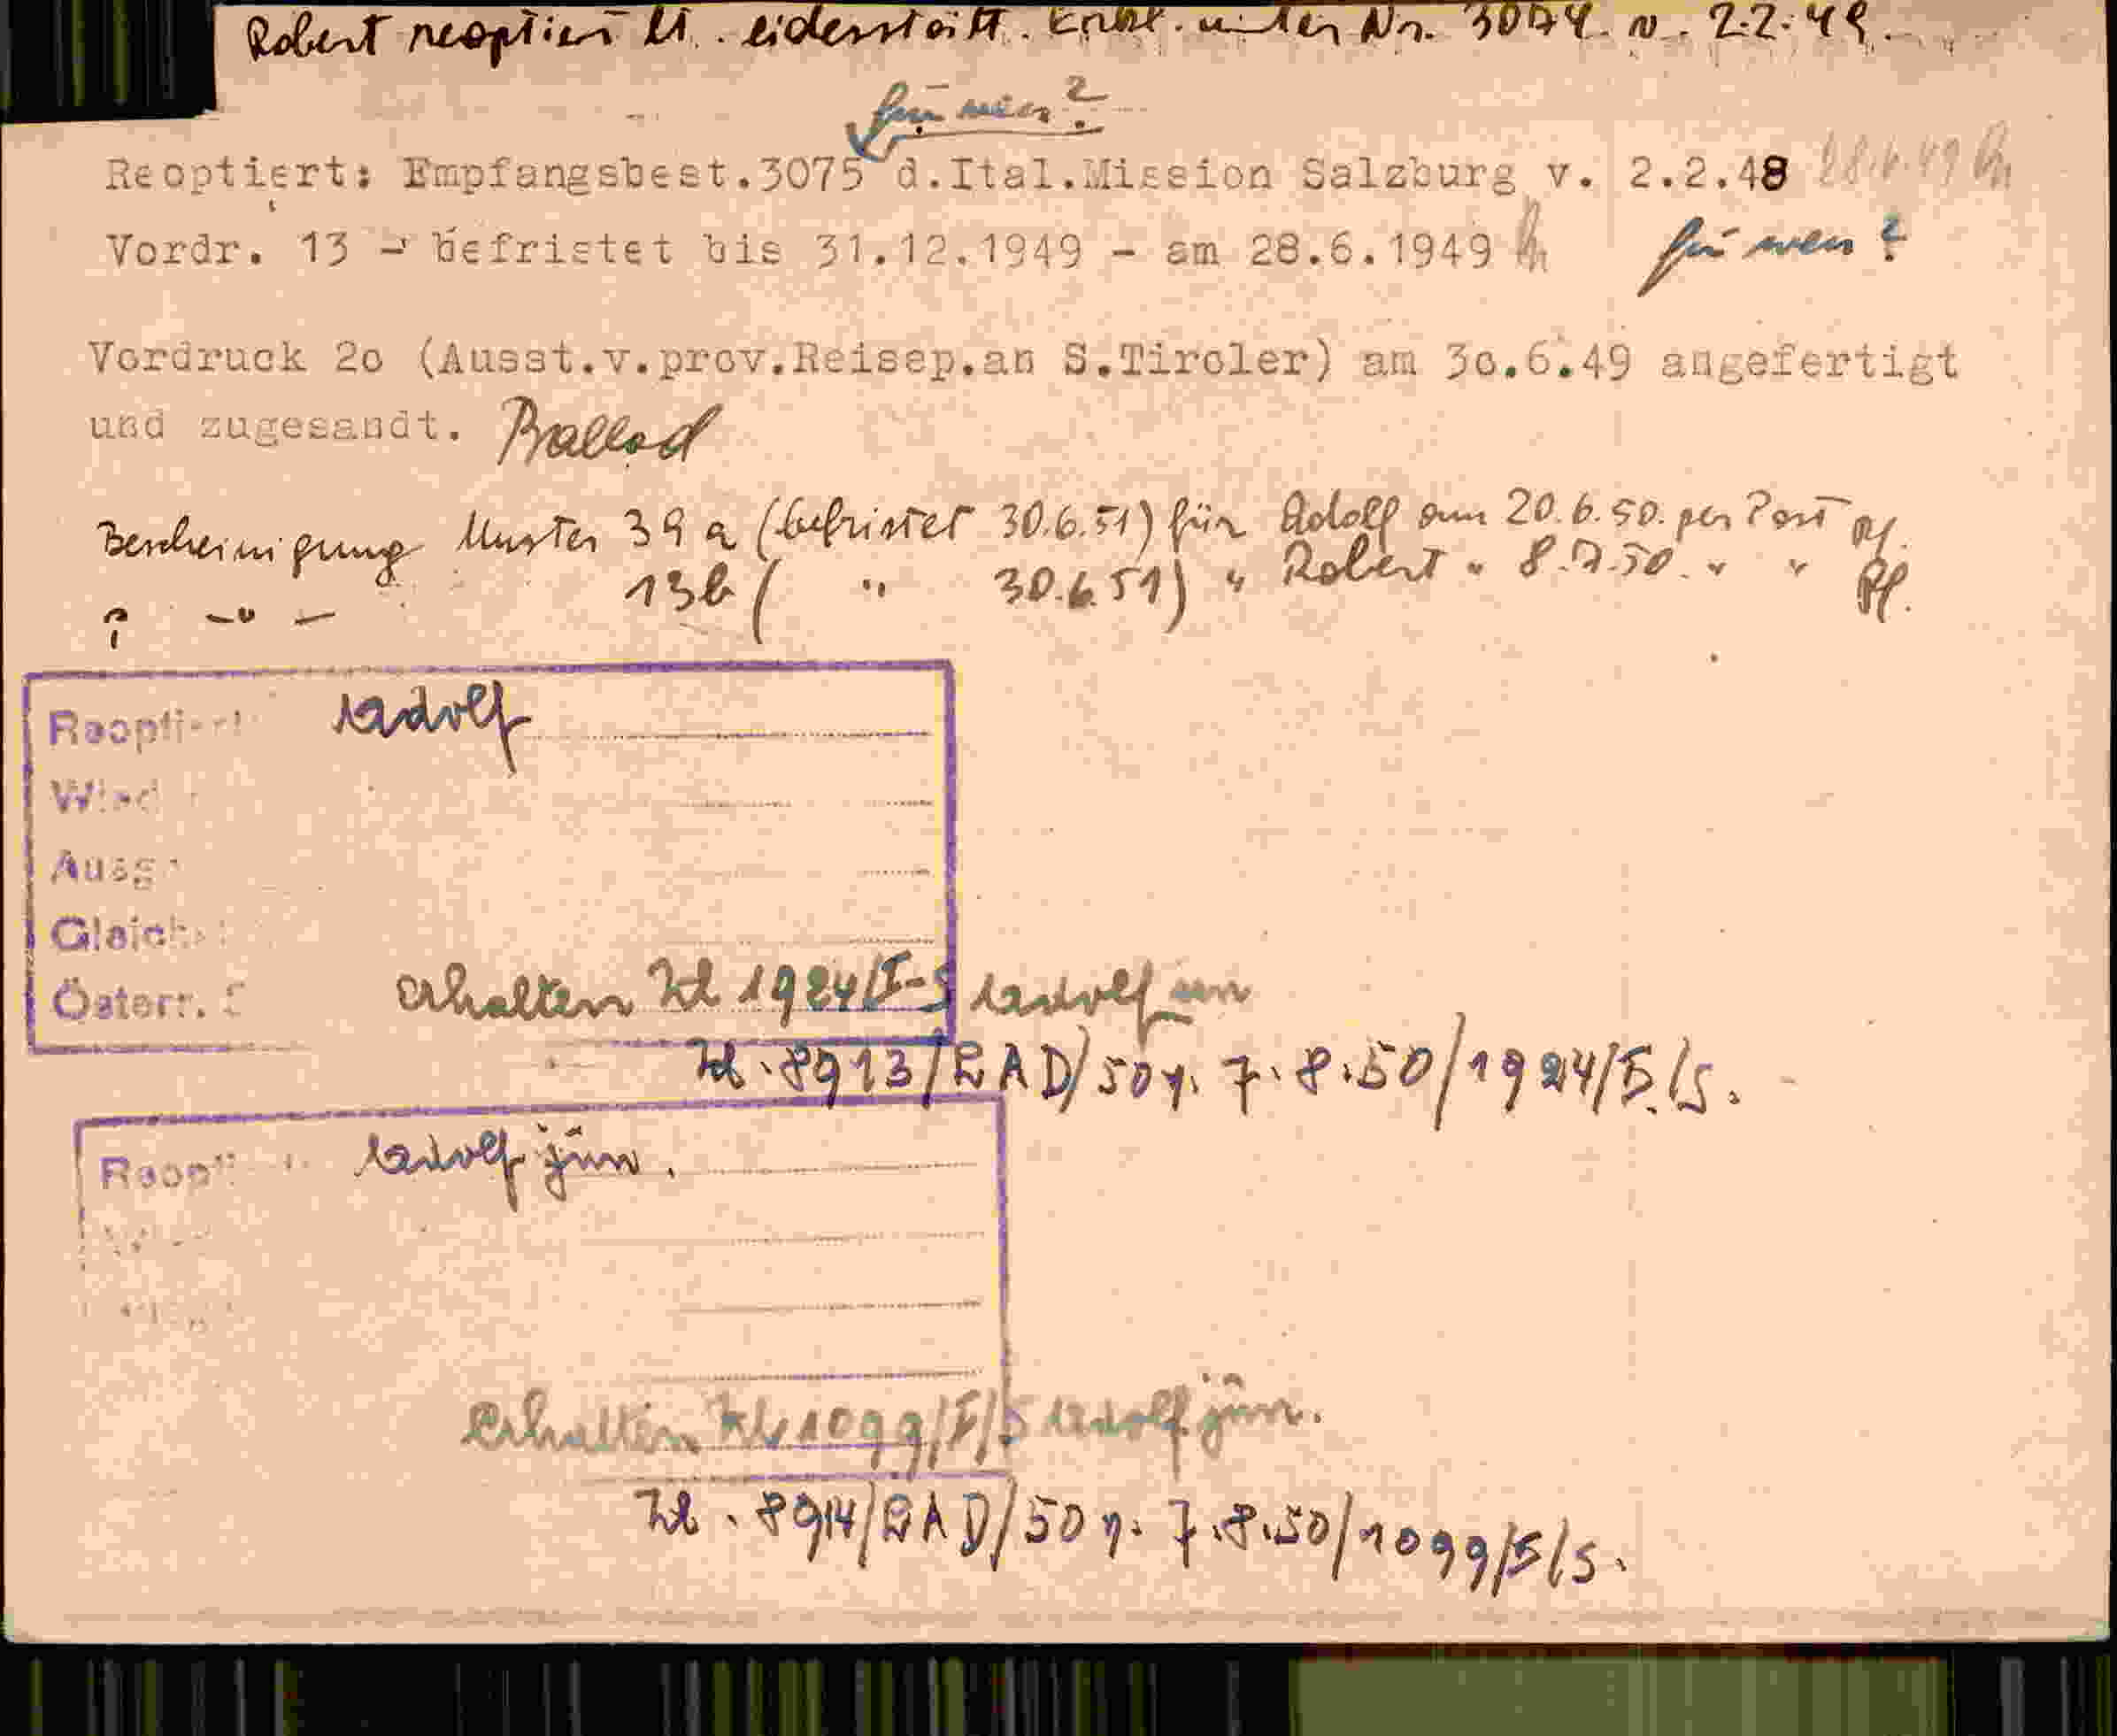 Robert reoptiert lt. eidesstätt. Erkl. unter Nr. 3074 v. 2.2.49.
für wen?
Reoptiert: Empfangsbest.3075 d.Ital.Mission Salzburg v. 2.2.48 28.6.49
Vordr. 13 - befristet bis 31.12.1949 - am 28.6.1949 für wen?
Vordruck 2o (Ausst.v.prov.Reisep.an S.Tiroler) am 3o.6.49 angefertigt
und zugesandt. Ballod
Bescheinigung Muster 39 a (befristet 30.6.51) für Adolf am 20.6.50. per Post Pf.
? -"- 13b ( " 30.6.51) " Robert " 8.7.50. " " Pf.
Reoptiert Adolf
Wied
Ausg
Gleich
Österr. erhalten Zl 1924/I-S Adolf sen
Zl. 8913/RAD/50 v. 7.8.50/1924/I/S.
Reopti Adolf jun.
Erhalten Zl 1099/I/S Adolf jun.
Zl. 8914/RAD/50 v. 7.8.50/1099/I/S.